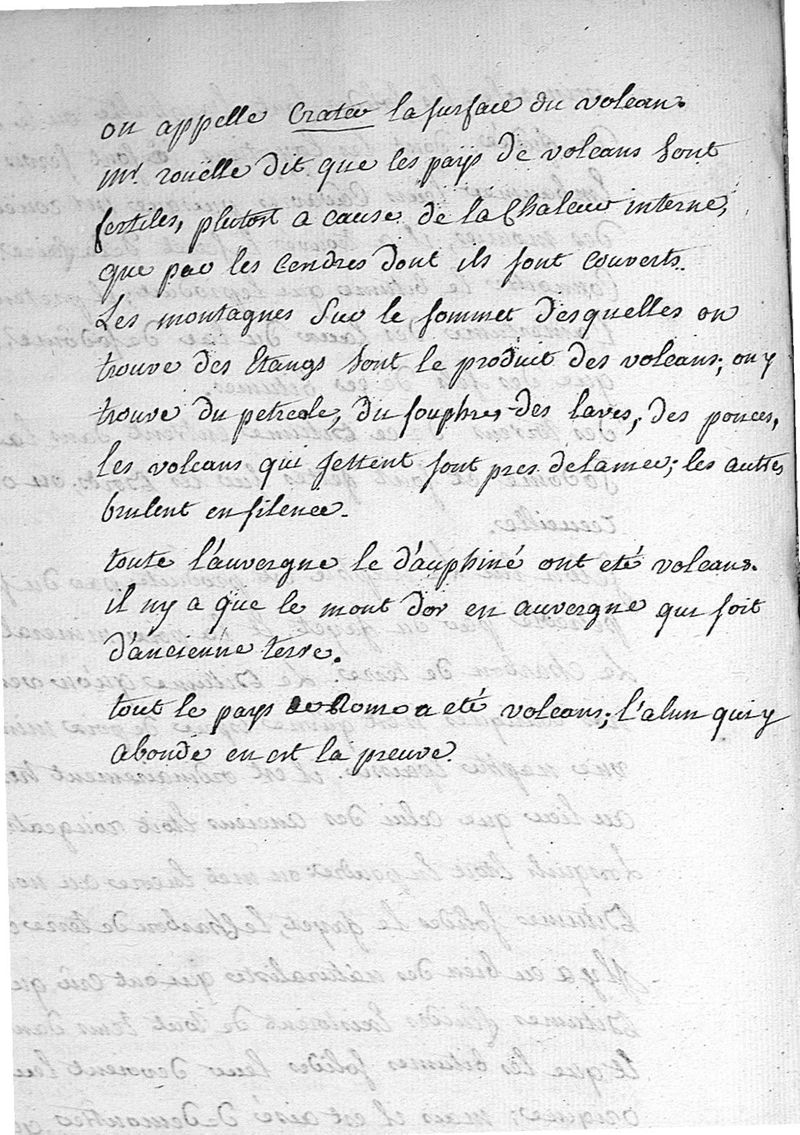 on appelle Crater la surface du volcan.
Mr. rouëlle dit que les païs de volcans sont
fertiles, plutost a cause de la Chaleur interne,
que par les Cendres dont ils sont couverts.
Les montagnes sur le sommet desquelles on
trouve des Etangs sont le produit des volcans; on y
trouve du petreole, du souphre, des laves, des ponces,
les volcans qui jettent sont pres de la mer; les autres
brulent en silence.
toute l'auvergne le d'auphiné ont eté volcans.
il ny a que le mont d'or en auvergne qui soit
d'anciéne terre.
tout le pays de Rome a eté volcans; l'alun qui y
abonde en est la preuve.